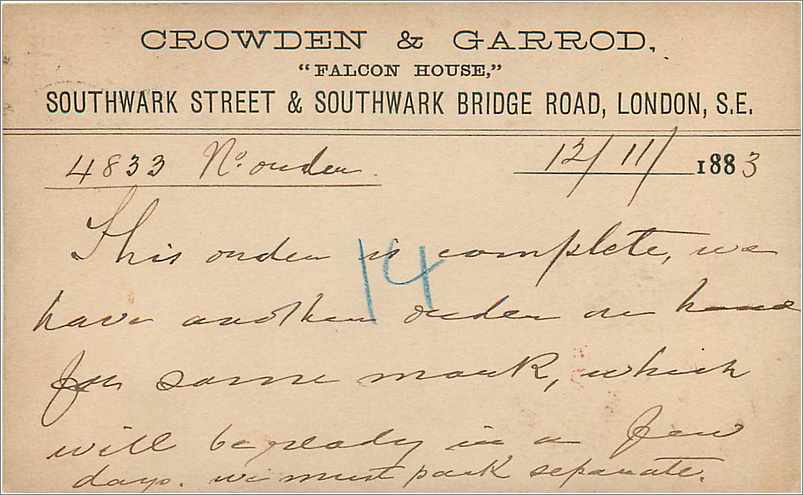 CROWDEN & GARROD,
"FALCON HOUSE,"
SOUTHWARK STREET & SOUTHWARK BRIDGE ROAD, LONDON, S.E.
4833 No. order 12/11/1883
This order is complete, we
14
have another order on hand
for same mark, which
will be ready in a few
days. we must pack separate.